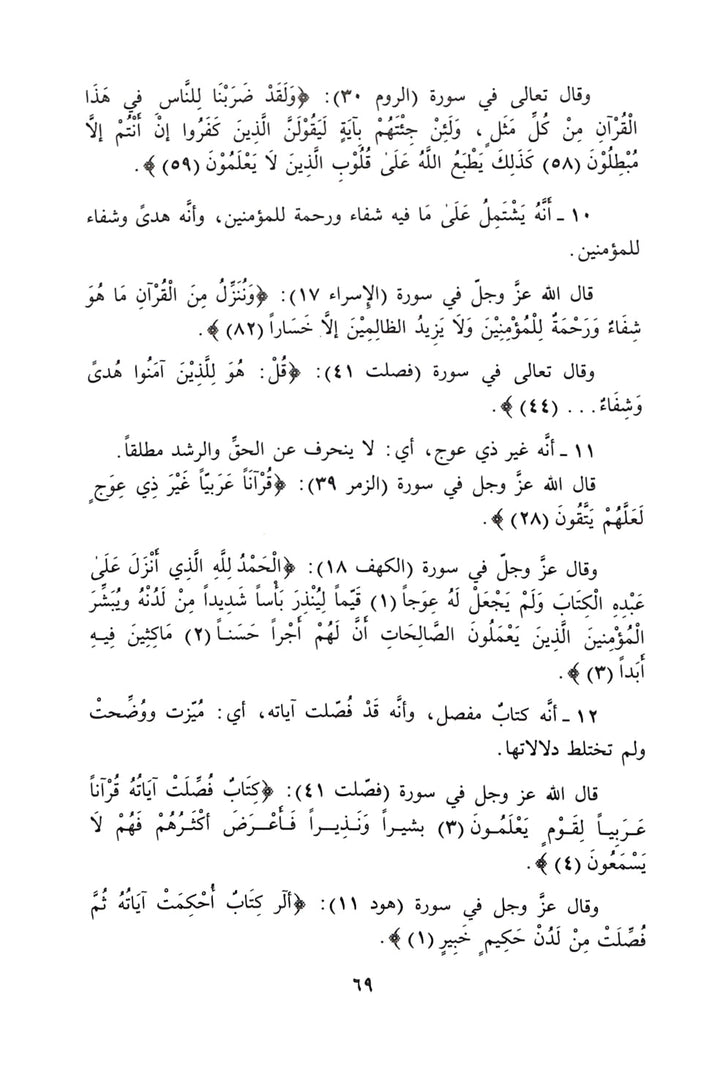 وقال تعالى في سورة (الروم ٣٠): ﴿وَلَقَدْ ضَرَبْنَا لِلنَّاسِ في هَذَا
الْقُرْآنِ مِنْ كُلِّ مَثَلٍ، وَلَئِنْ جِئْتَهُمْ بِآيَةٍ لَيَقُولَنَّ الَّذِينَ كَفَرُوا إنْ أَنْتُمْ إلَّا
مُبْطِلُوْنَ (٥٨) كَذَلِكَ يَطْبَعُ اللَّهُ عَلَىٰ قُلُوْبِ الَّذِينَ لَا يَعْلَمُوْنَ (٥٩)﴾.
١٠ ـ أَنَّهُ يَشْتَمِلُ عَلَىٰ مَا فيه شفاء ورحمة للمؤمنين، وأنَّه هدىً وشفاء
للمؤمنين.
قال الله عزَّ وجلّ في سورة (الإسراء ١٧): ﴿وَنُنَزِّلُ مِنَ الْقُرْآنِ مَا هُوَ
شِفَاءٌ وَرَحْمَةٌ لِلْمُؤْمِنِيْنَ وَلَا يَزِيدُ الظالِمِيْنَ إلَّا خَسَاراً (٨٢)﴾.
وقال تعالى في سورة (فصلت ٤١): ﴿قُلْ: هُوَ لِلَّذِيْنَ آمَنُوا هُدىً
وَشِفَاءٌ... (٤٤)﴾.
١١ ـ أنَّه غير ذي عوج، أي: لا ينحرف عن الحقِّ والرشد مطلقاً.
قال الله عزَّ وجل في سورة (الزمر ٣٩): ﴿قُرْآنَاً عَرَبيّاً غَيْرَ ذِي عِوَجٍ
لَعَلَّهُمْ يَتَّقُونَ (٢٨)﴾.
وقال عزَّ وجلّ في سورة (الكهف ١٨): ﴿الْحَمْدُ لِلَّهِ الَّذِي أَنْزَلَ عَلَىٰ
عَبْدِهِ الْكِتَابَ وَلَمْ يَجْعَلْ لَهُ عِوَجاً (١) قَيِّماً لِيُنْذِرَ بَأْساً شَدِيداً مِنْ لَدُنْهُ ويُبَشِّرَ
الْمُؤْمِنينَ الَّذِينَ يَعْمَلُونَ الصَّالِحَاتِ أَنَّ لَهُمْ أَجْراً حَسَناً (٢) مَاكِثِينَ فِيهِ
أَبَداً (٣)﴾.
١٢ ـ أنَّه كتابٌ مفصل، وأنَّه قَدْ فُصّلت آياته، أي: مُيّزت ووُضِّحتْ
ولم تختلط دلالاتها.
قال الله عز وجل في سورة (فصّلت ٤١): ﴿كِتَابٌ فُصِّلَتْ آيَاتُهُ قُرْآناً
عَرَبِياً لِقَوْمٍ يَعْلَمُونَ (٣) بشيراً وَنَذِيراً فَأَعْرَضَ أكْثَرُهُمْ فَهُمْ لَا
يَسْمَعُونَ (٤)﴾.
وقال عزَّ وجل في سورة (هود ١١): ﴿ألٓر كِتَابٌ أُحْكِمَتْ آيَاتُهُ ثُمَّ
فُصِّلَتْ مِنْ لَدُنْ حَكِيمٍ خَبِيرٍ (١)﴾.
٦٩